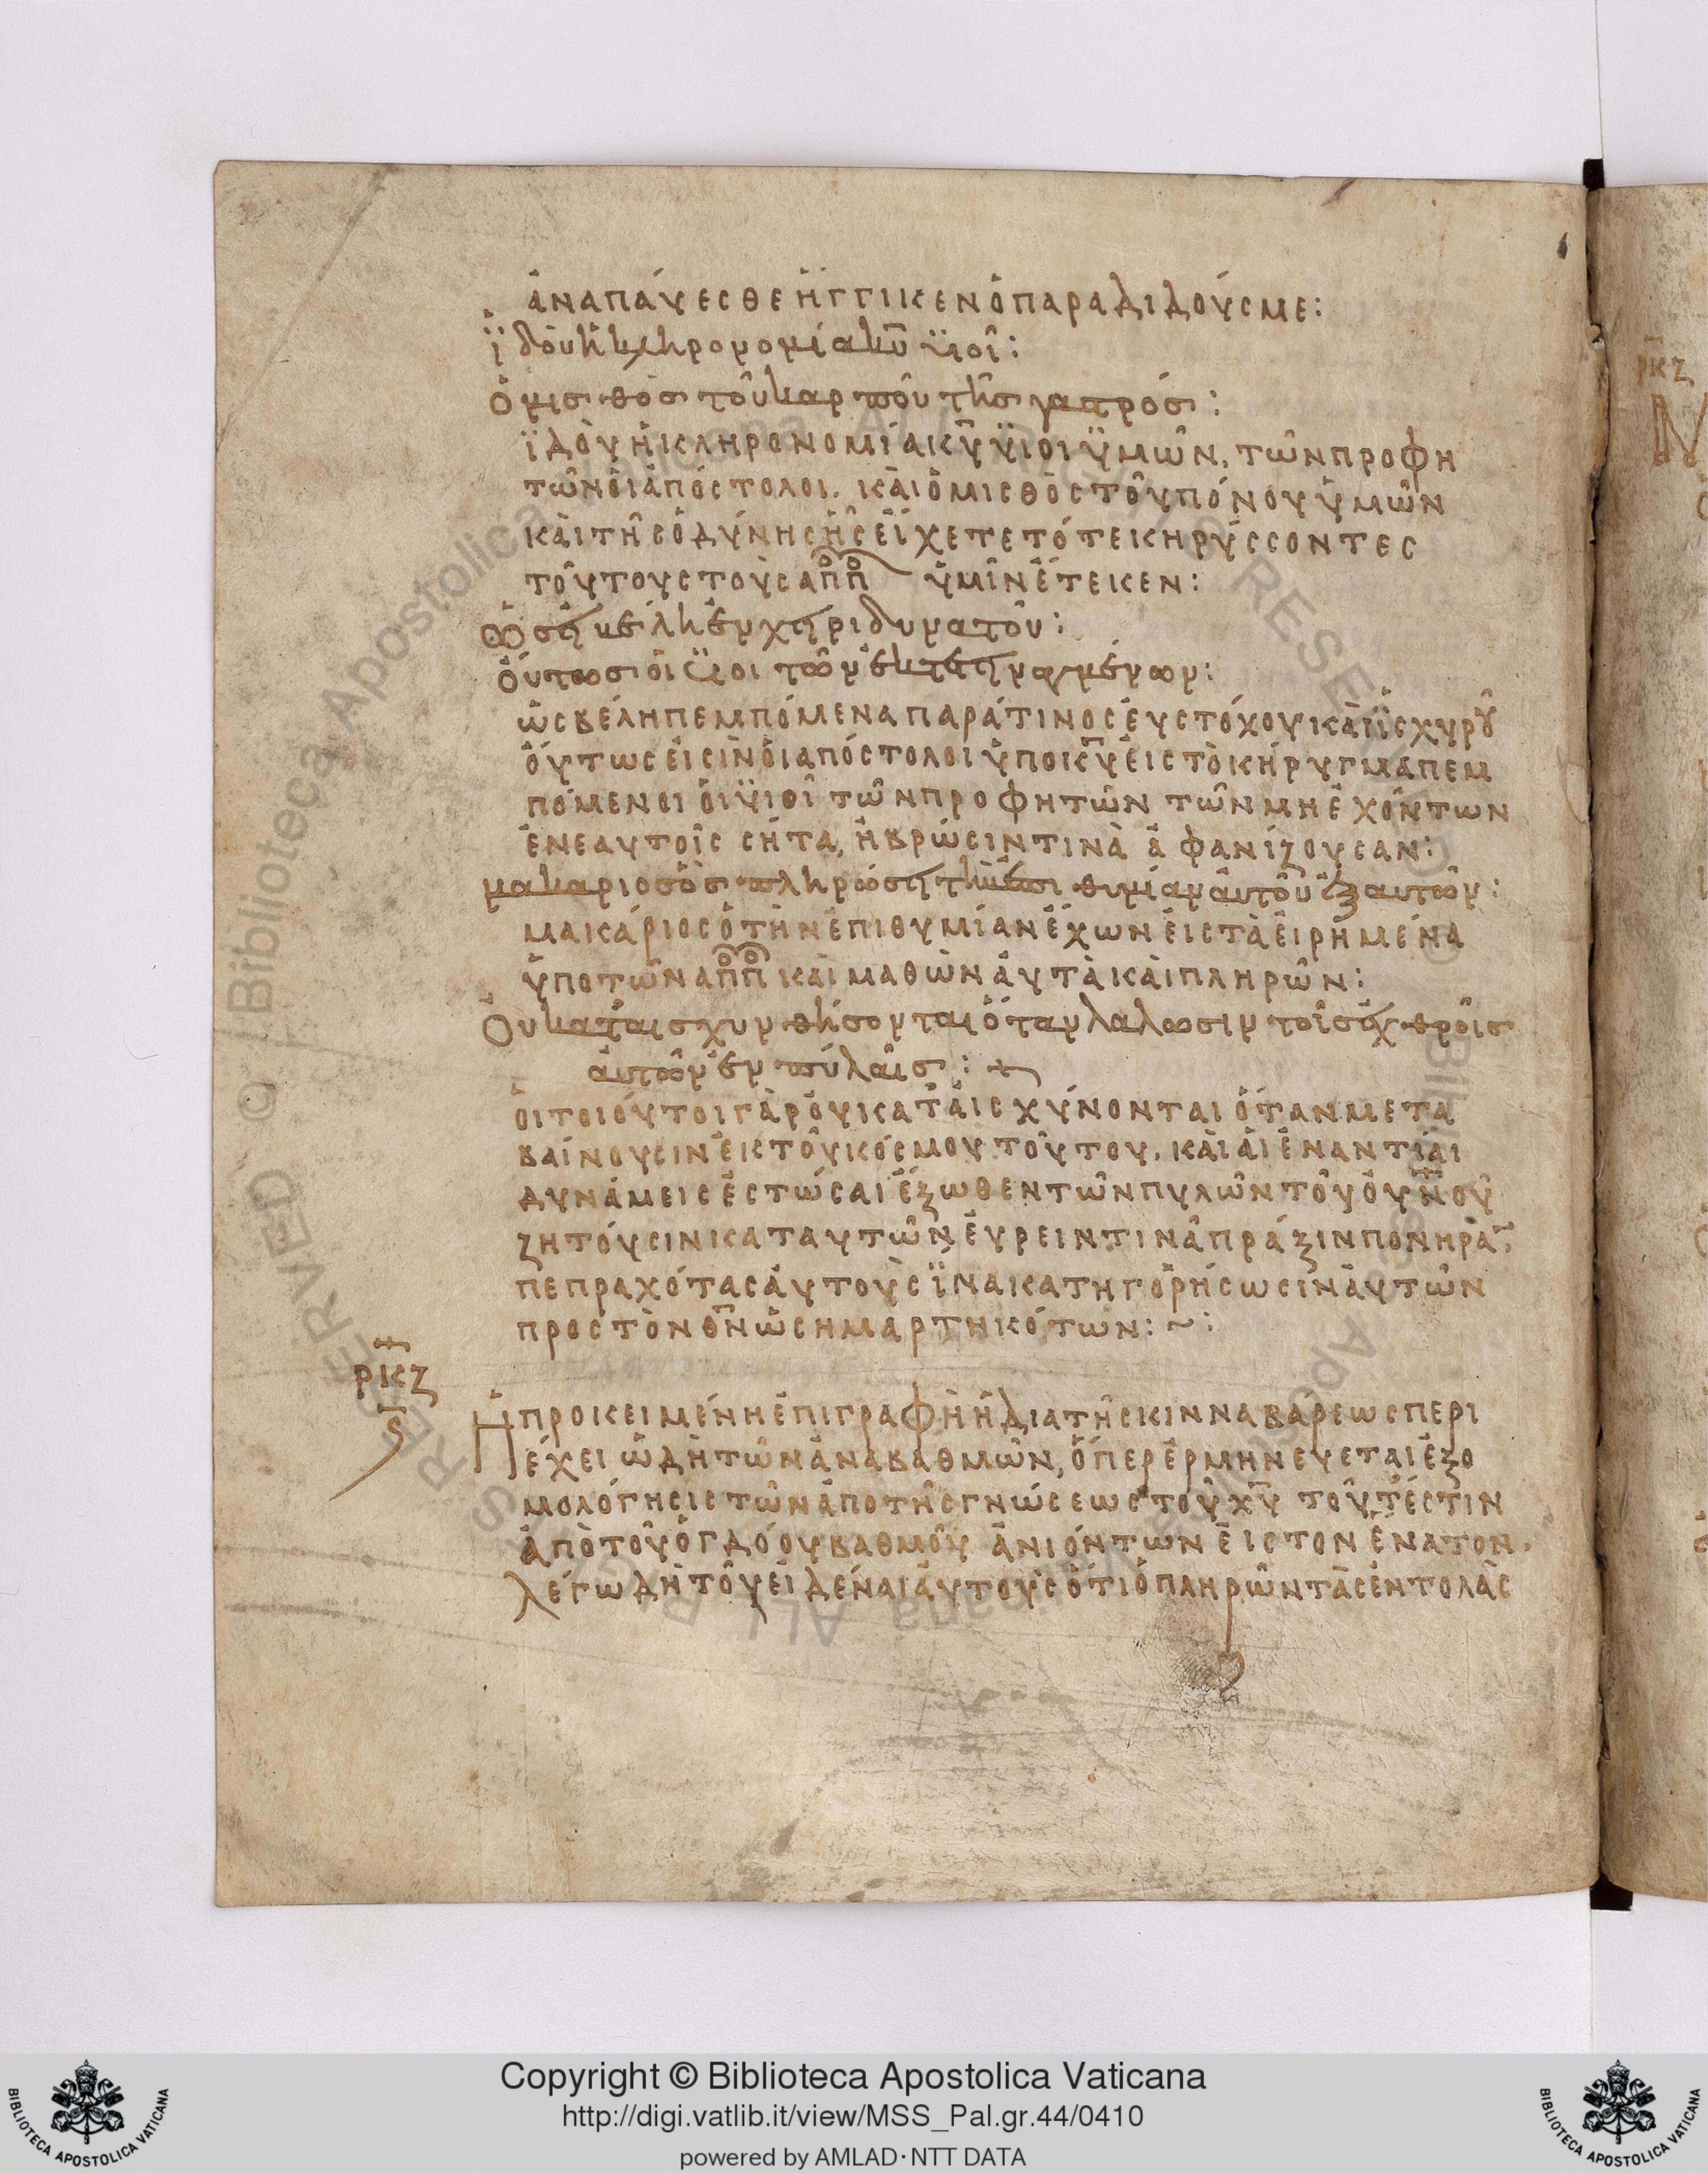 ἀναπαύεσθε ἤγγικεν ὁ παραδιδούς με:
ἰδοὺ ἡ κληρονομία κ̅υ̅ υἱοί:
ὁ μισθὸς τοῦ καρποῦ τῆς γαστρός:
ἰδοὺ ἡ κληρονομία κ̅υ̅ υἱοι ὑμῶν, τῶν προφη
τῶν οἱ ἀπόστολοι. καὶ ὁ μισθὸς τοῦ πόνου ὑμῶν
καὶ τῆς ὀδύνης ἧς εἴχετε τότε κηρύσσοντες
τούτους τοὺς απππ ὑμῖν ἔτεκεν:
ὡσεὶ βέλη ἐν χειρὶ δυνατοῦ:
οὕτως οἱ υἱοι τῶν ἐκτετιναγμένων:
ὡς βέλη πεμπόμενα παρά τινος εὐστόχου καὶ ἰσχυροῦ
οὕτως εἰσὶν οἱ απόστολοι ὑπο κ̅υ̅ εἰς τὸ κήρυγμα πεμ
πόμενοι οἱ υἱοὶ τῶν προφητῶν τῶν μὴ ἐχόντων
ἐν εαυτοῖς σῆτα, ἢ βρώσιν τινὰ ἀφανίζουσαν:
μακαριος ὃς πληρώσει τὴν ἐπιθυμίαν αὐτοῦ ἐξ αυτῶν:
μακάριος ὁ τὴν ἐπιθυμίαν ἔχων εἰς τὰ εἰρημένα
ὑπο τῶν αππ καὶ μαθὼν αὐτὰ καὶ πληρῶν:
Οὐ καταισχυνθήσονται ὅταν λαλωσιν τοῖς ἐχθροῖς
αὐτῶν ἐν πύλαις: +
οἱ τοιούτοι γὰρ οὐ καταισχύνονται ὅταν μετα
βαίνουσιν ἐκ τοῦ κόσμου τούτου, καὶ αἱ ἐναντίαι
δυνάμεις ἑστώσαι ἔξωθεν τῶν πυλῶν τοῦ ουν̅οῦ
ζητούσιν κατ αυτῶν εὑρειν τινὰ πράξιν πονηρὰν,
πεπραχότας αὐτοὺς ἵνα κατηγορήσωσιν αὐτῶν
προς τὸν θ̅ν̅ ὡς ημαρτηκότων: ~:
ρκζ
Ἡ προκειμένη ἐπιγραφὴ ἡ δια τῆς κινναβάρεως περι
έχει ὠδὴ τῶν ἀναβαθμῶν, ὅπερ ἑρμηνευεται ἐξο
μολόγησις τῶν ἀπο τῆς γνώσεως τοῦ χ̅υ̅ τουτέστιν
ἀπὸ τοῦ ὀγδόου βαθμοῦ ἀνιόντων εἰς τον ἔνατον,
λέγω δὴ τοῦ εἰδέναι αὐτους ὅτι ὁ πληρῶν τὰς ἐντολὰς
ρκζ
Copyright © Biblioteca Apostolica Vaticana
http://digi.vatlib.it/view/MSS_Pal.gr.44/0410
powered by AMLAD·NTT DATA
BIBLIOTECA APOSTOLICA VATICANA
BIBLIOTECA APOSTOLICA VATICANA